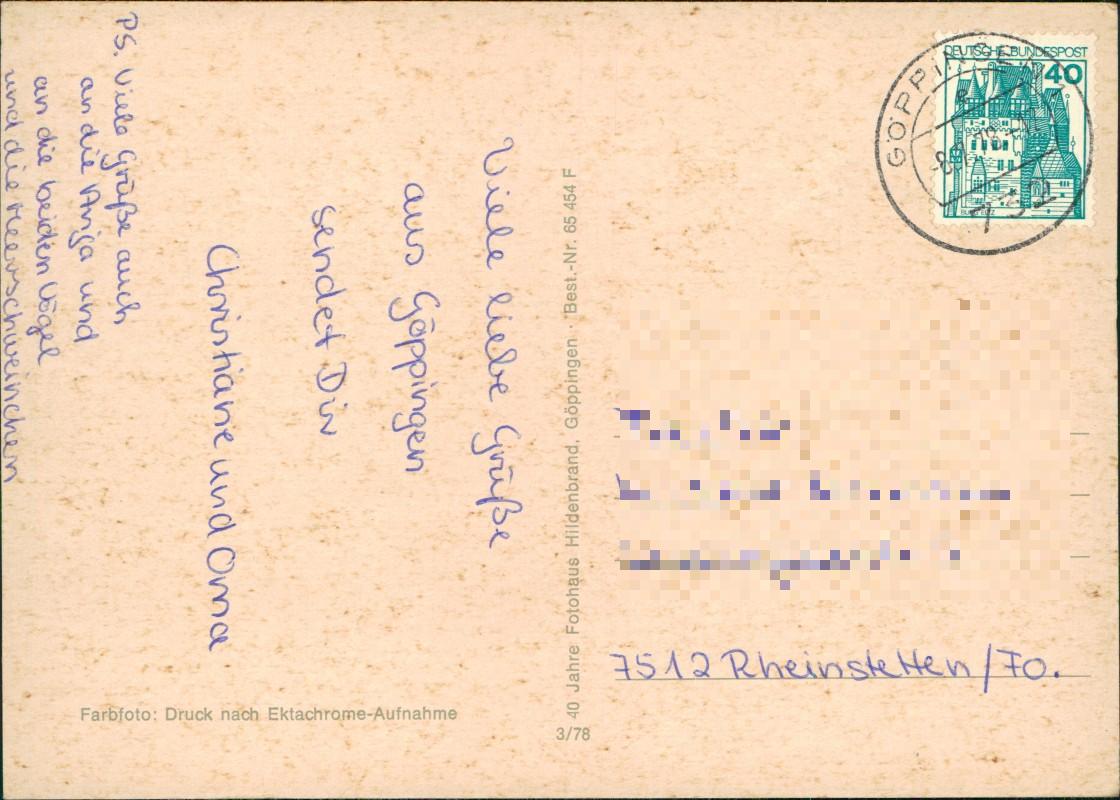 Viele liebe Grüße
aus Göppingen
sendet Dir
Christiane und Oma
PS. Viele Grüße auch
an die Anja und
an die beiden Vögel
und die Meerschweinchen
Farbfoto: Druck nach Ektachrome-Aufnahme
40 Jahre Fotohaus Hildenbrand, Göppingen · Best.-Nr. 65 454 F
3/78
DEUTSCHE BUNDESPOST
40
GÖPPINGEN
732
7512 Rheinstetten/Fo.